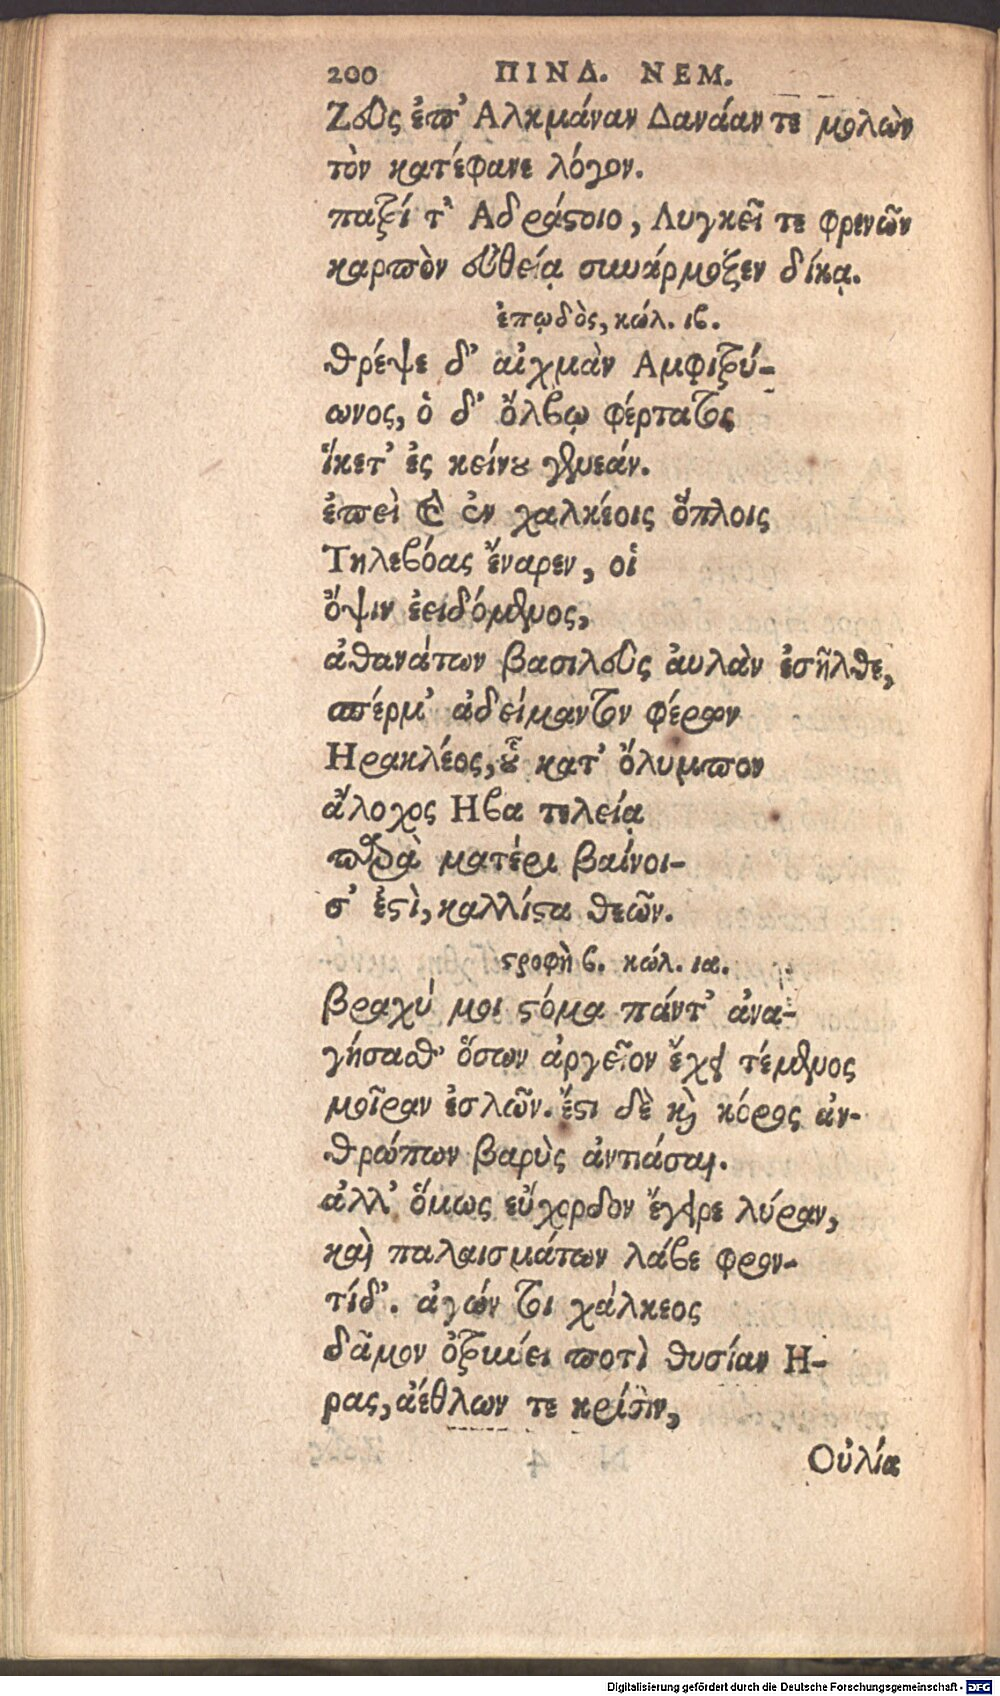 200 ΠΙΝΔ. ΝΕΜ.
Ζεὺς ἐπ' Αλκμάναν Δανάαν τε μολὼν
τὸν κατέφανε λόγον.
πατρί τ' Αδράστοιο, Λυγκεῖ τε φρενῶν
καρπὸν εὐθείᾳ συνάρμοξεν δίκᾳ.
ἐπῳδὸς, κώλ. ιβ.
θρέψε δ' αἰχμὰν Αμφιτρύ-
ωνος, ὁ δ' ὄλβῳ φέρτατος
ἵκετ' ἐς κείνου γενεάν.
ἐπεὶ καὶ ἐν χαλκέοις ὅπλοις
Τηλεβόας ἔναρεν, οἱ
ὄψιν ἐειδόμενος,
ἀθανάτων βασιλεὺς ἀυλὰν ἐσῆλθε,
σπέρμ' ἀδείμαντον φέρων
Ηρακλέος, οὗ κατ' ὄλυμπον
ἄλοχος Ηβα τελείᾳ
παρὰ ματέρι βαίνοι-
σ' ἐστὶ, καλλίστα θεῶν.
στροφὴ β. κώλ. ια.
βραχύ μοι στόμα πάντ' ἀνα-
γήσασθ' ὅσων ἀργεῖον ἔχει τέμενος
μοῖραν ἐσλῶν. ἔστι δὲ καὶ κόρος ἀν-
θρώπων βαρὺς ἀντιάσαι.
ἀλλ' ὅμως εὔχορδον ἔγειρε λύραν,
καὶ παλαισμάτων λάβε φρον-
τίδ'. ἀγών τοι χάλκεος
δᾶμον ὀτρύνει ποτὶ θυσίαν Η-
ρας, ἀέθλων τε κρίσιν,
Οὐλία
Digitalisierung gefördert durch die Deutsche Forschungsgemeinschaft - DFG